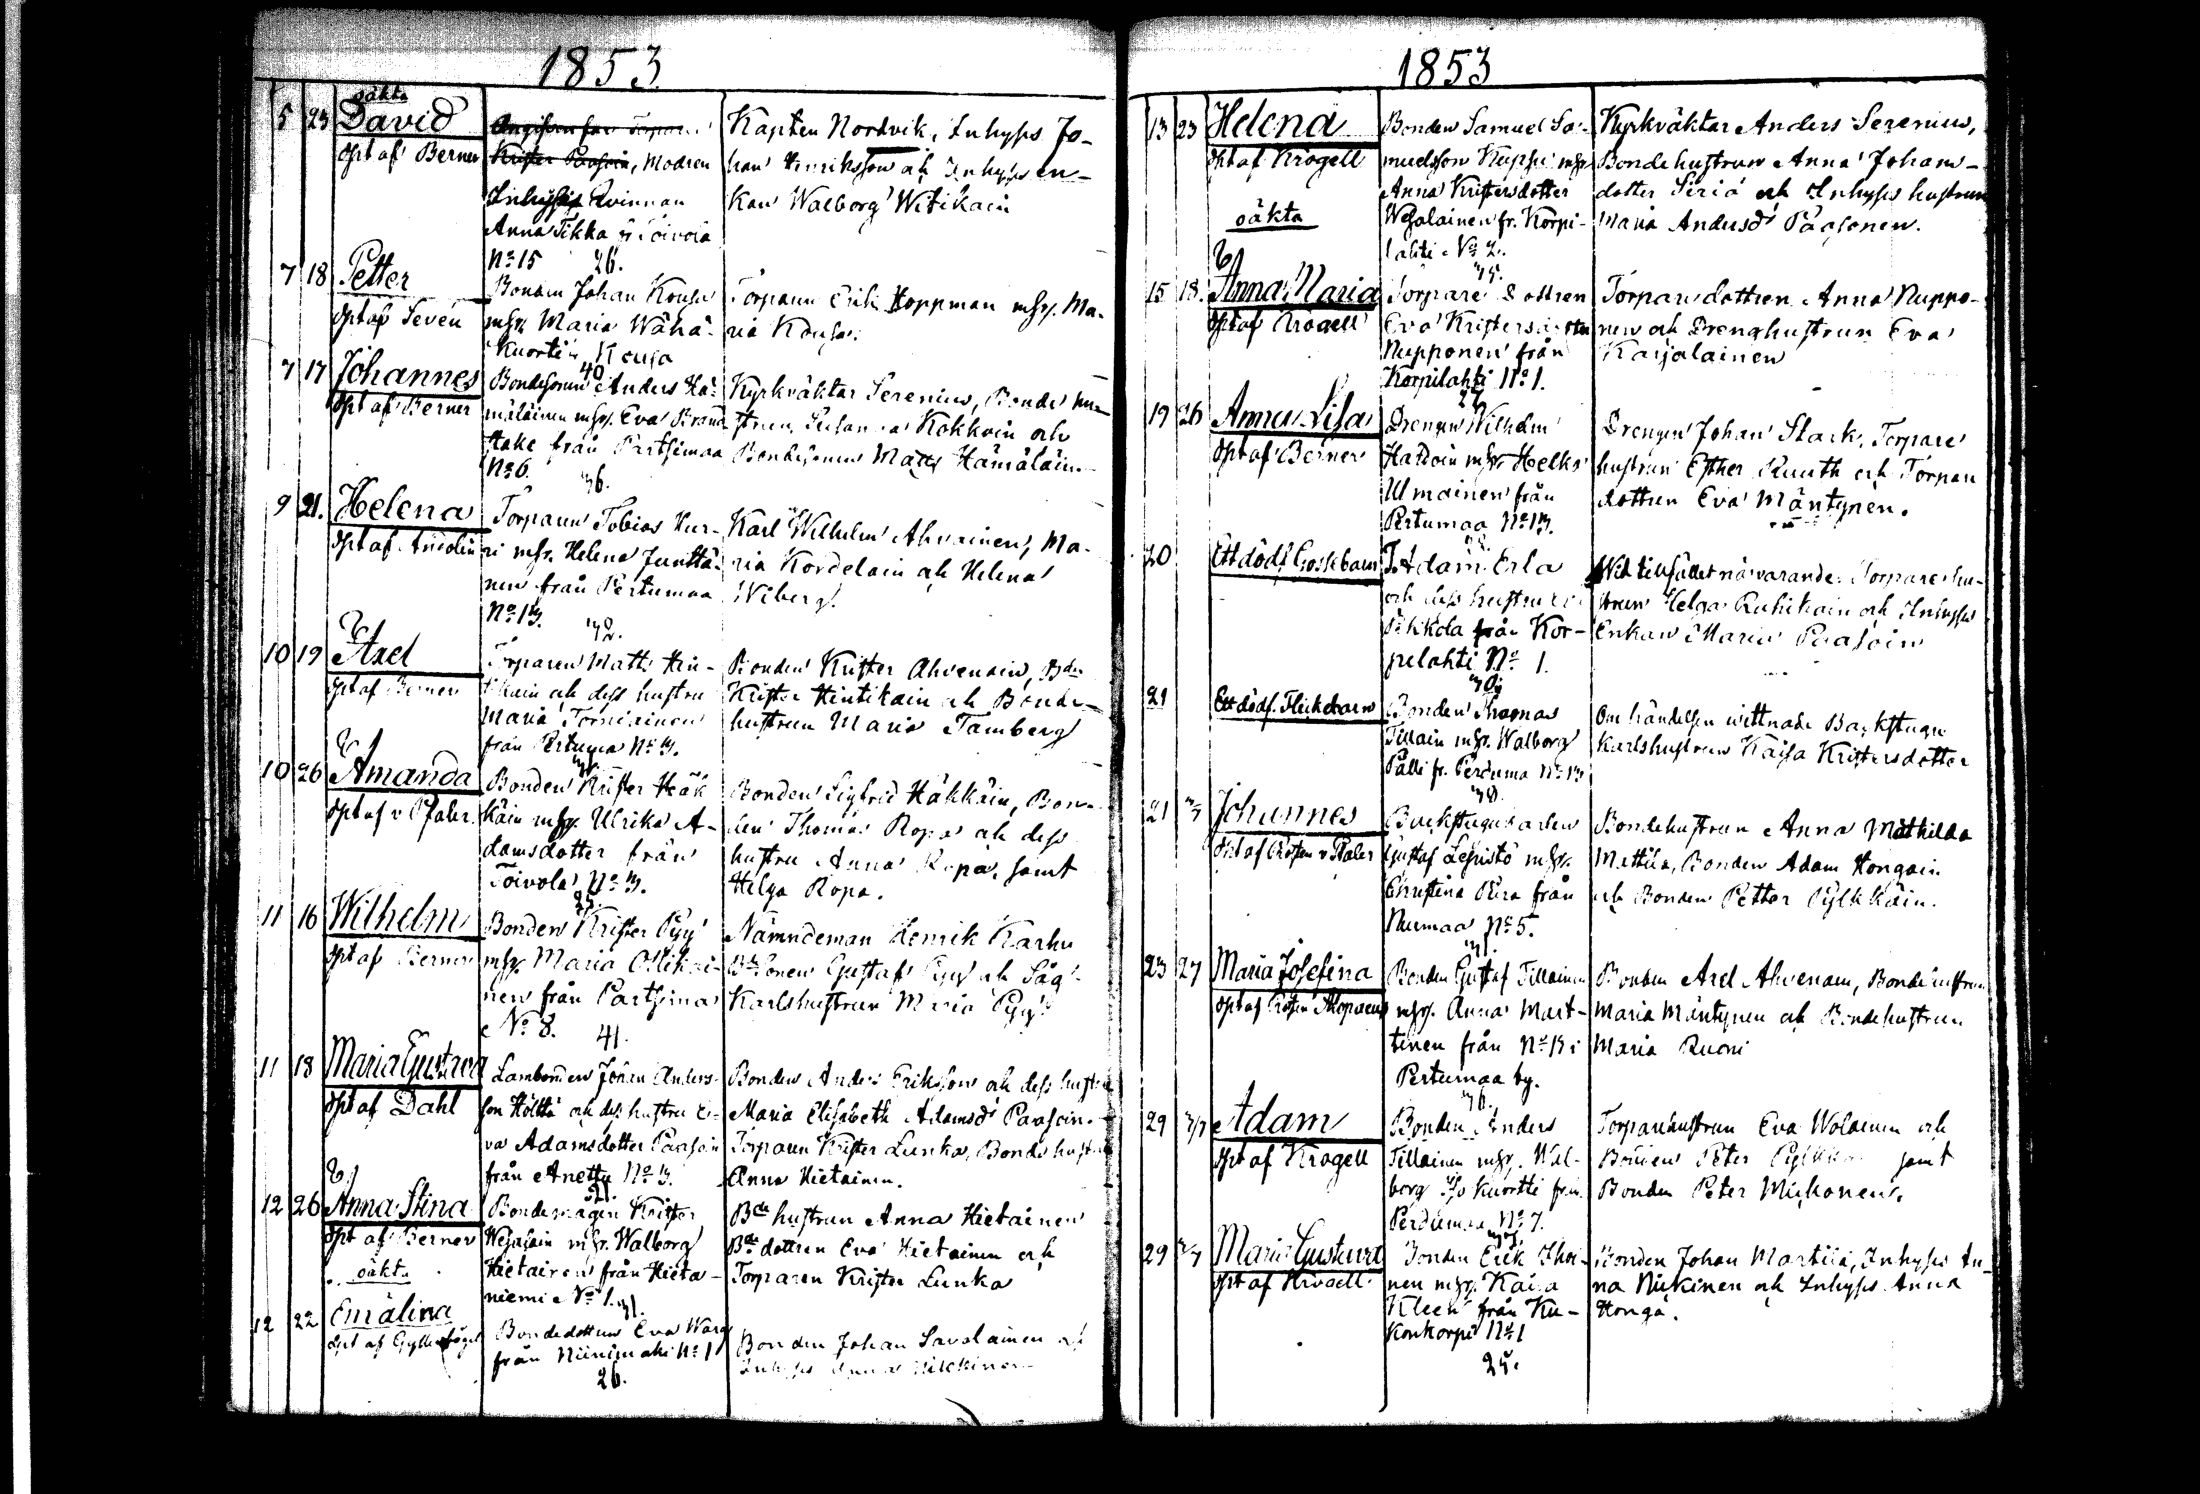 1853.
5 23 oäkta
David
Döpt af Berner
Krister Paasoin, modren
Inhyses Qvinnan
Anna Tikka fr Toivola
No 15 26.
Kapten Nordvik, Inhyses Jo-
han Henriksson och Inhyses en-
kan Walborg Witikain
7 18 Petter
Döpt af Seven
Bonden Johan Kousa
mhr. Maria Wähä-
kuortti, Kousa
40
Torparen Erik Hoppman mhr. Ma-
ria Kousa.
7 17 Johannes
Döpt af Berner
Bondesonen Anders Hä-
mäläinen mhr. Eva Brand-
stake från Partsimaa
No 6. 36.
Kyrkväktar Serenius, Bonde hu-
strun Susanna Kokkoin och
Bondesonen Matts Hämäläin
9 21. Helena
Döpt af Ancolin
Torparen Tobias Hur-
ri mhr. Helena Junttä-
nen från Pertumaa
No 13. 32.
Karl Wilhelm Ahvainen, Ma-
ria Kordelain och Helena
Wiberg.
10 19 Axel
Döpt af Berner
Torparen Matts Hin-
tikain och dess hustru
Maria Torniainen
från Pertuma No 3.
Bonden Krister Ahvenain, Bden
Krister Hintikain och Bonde-
hustrun Maria Tamberg
10 26 Amanda
Döpt af v Pfaler.
Bonden Krister Häk
käin mhr. Ulrika A-
damsdotter från
Toivola No 3.
Bonden Sigfrid Häkkäin, Bon-
den Thomas Ropa och dess
hustru Anna Ropa, samt
Helga Ropa.
11 16 Wilhelm
Döpt af Berner
Bonden Krister Pyy
mhr. Maria Ollikai-
nen från Partsima
No 8. 41.
Nämndeman Henrik Karhu
Bdesonen Gustaf Pyy och Såg-
Karlshustrun Maria Pyy
11 18 Maria Gustava
Döpt af Dahl
Lambonden Johan Anders-
son Hölttä och dess hustru E-
va Adamsdotter Paasoin
från Anetty No 3.
Bonden Anders Eriksson och dess hustru
Maria Elisabeth Adamsdr Paasoin.
Torparen Krister Lunka, Bonde hustrun
Anna Hietainen.
12 26 Anna Stina
Döpt af Berner
oäkta
Bondemågen Krister
Wesasain mhr. Walborg
Hietainen från Hieta-
niemi No 1. 31.
Bde hustrun Anna Hietainen
Bde dottren Eva Hietainen och
Torparen Krister Lunka
12 22 Emälina
Döpt af Gyllenbögel
Bondedottren Eva Warg
från Niinimäki No 1
26.
Bonden Johan Savolainen och
Inhyses Anna Nilckinen
1853
13 23 Helena
Döpt af Krogell
oäkta
Bonden Samuel Sa-
muelsson Kuppi mhr
Anna Kristersdotter
Wesalainen fr. Korpi-
lahti No 2.
Kyrkväktar Anders Serenius,
Bondehustrun Anna Johans-
dotter Siriä och Inhyses hustrun
Maria Andersdr Paasonen.
15 18. Anna Maria
Döpt af Krogell
Torpare dottren
Eva Kristersdotter
Nupponen från
Korpilahti No 1.
22
Torpare dottren Anna Nuppo-
nen och Drenghustrun Eva
Karjalainen
19 26 Anna Lisa
Döpt af Berner
Drengen Wilhelm
Hardoin mhr. Helka
Ulmainen från
Pertumaa No 13.
Drengen Johan Stark, Torpare
hustrun Esther Ruuth och Torpare
dottren Eva Mäntynen.
20 Ett dödf. Gossebarn
T. Adam Erla
och dess hustru
från Kor-
pelahti No 1.
Wid tillfället närvarande: Torpare hu-
strun Helga Ruhikain och Inhyses
Enkan Maria Paasoin
21 Ett dödf. Flickebarn
Bonden Thomas
Tillain mhr. Walborg
Palli fr. Pertuma No 13
Om händelsen wittnade Backstugu
Karlshustrun Kaisa Kristersdotter
21 Johannes
Backstugukarlen
Gustaf Lejristö mhr.
Christina från
Nurmaa No 5.
Bondehustrun Anna Mathilda
Mattila, Bonden Adam Hongain
och Bonden Petter Pylkkäin.
23 27 Maria Josefina
Bonden Gustaf Tillainen
mhr. Anna Mart-
tinen från No 13 i
Pertumaa by.
Bonden Axel Ahvenain, Bondehustrun
Maria Mäntynen och Bondehustrun
Maria Ruoni
29 Adam
Döpt af Krogell
Bonden Anders
Tillainen mhr. Wal-
borg Kuortti från
Pertumaa No 7.
Torparehustrun Eva Wolainen och
Bonden Peter Pylkkäin samt
Bonden Peter Miskonen.
29 Maria Gustava
Döpt af Krogell
Bonden Erik Ihoi-
nen mhr. Kaisa
Kleen från Ku-
konkorpi No 1
25.
Bonden Johan Martikä, Inhyses An-
na Niikinen och Inhyses Anna
Honga.